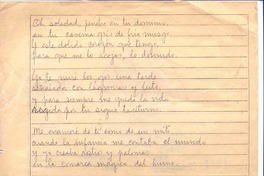 Oh, soledad, perdre en tu dominio,
en tu caverna gris de frío musgo
y este dolido corazón que tengo
para que me lo acojas, lo defiendo.
Yo te miré los ojos una tarde
de lágrimas y luto,
y para siempre me quedé la vida
por tu signo taciturno.
Me enamoré de ti como de un mito
cuando la infancia me contaba el mundo
y yo creaba y palomas
en la comarca mágica del humo.